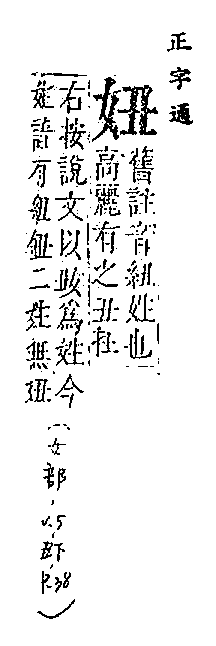 正字通
妞
舊註音紐姓也
高麗有之丑
右按說文以為姓今
姓譜有紐鈕二姓無妞
(女部, v.5, 丑下, p.38)